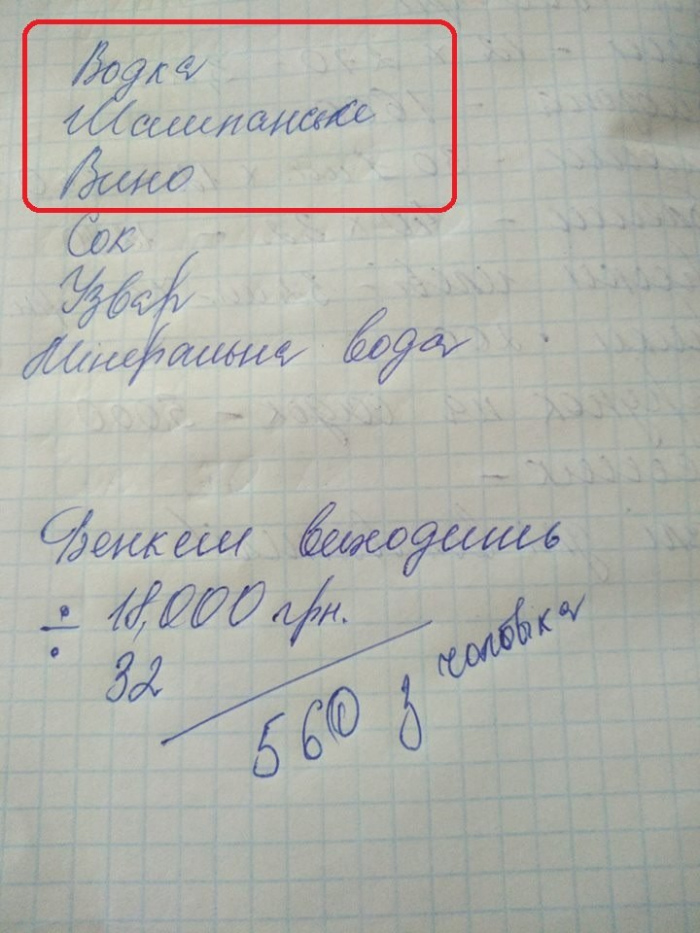 Водка
Шампанське
Вино
Сок
Узвар
Мінеральна вода
Бенкет виходить
÷ 18,000 грн.
32
560 з чоловіка